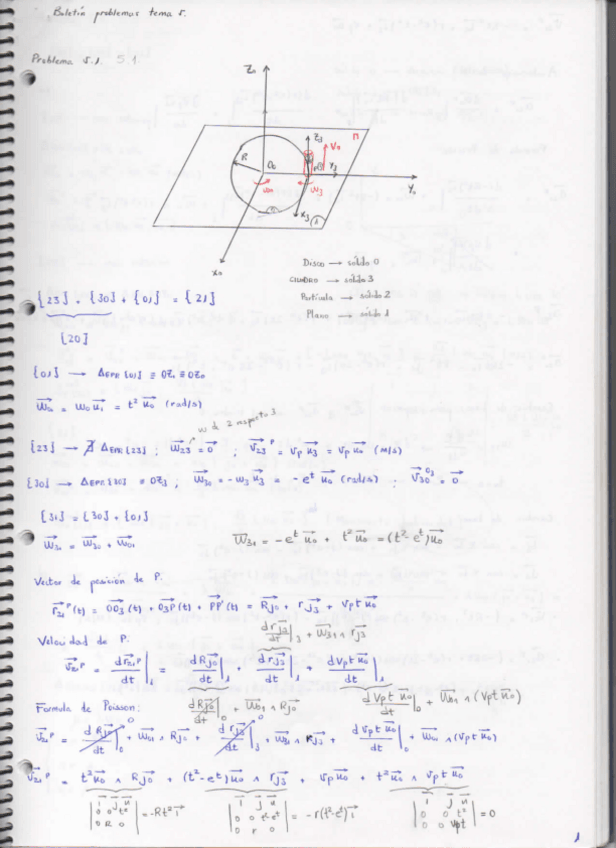 Boletín problemas tema 5.
Problema 5.1. 5.1.
Z0
Π
Z3
V0
R
O0
Y3
Y0
ω3
X3
X0
Disco → sólido 0
CILINDRO → sólido 3
Partícula → sólido 2
Plano → sólido 1
{23} + {30} + {01} = {21}
{20}
{01} → Δ EPR {01} ≡ OZ1 ≡ OZ0
ω01 = ω0 u1 = t² u0 (rad/s)
ω de 2 respecto 3
{23} → ∄ Δ EPR {23} ; ω23 = 0 ; v23^P = vp u3 = vp u0 (m/s)
{30} → Δ EPR {30} ≡ OZ3 ; ω30 = -ω3 u3 = -e^t u0 (rad/s) ; v30^O3 = 0
{31} = {30} + {01}
ω31 = ω30 + ω01
ω31 = -e^t u0 + t² u0 = (t² - e^t) u0
Vector de posición de P:
r21^P (t) = OO3 (t) + O3P (t) + PP' (t) = R j0 + r j3 + vp t u0
Velocidad de P:
d r j3 / dt |3 + ω31 ∧ r j3
v21^P = d r21^P / dt |1 = d R j0 / dt |1 + d r j3 / dt |1 + d vp t u0 / dt |1
Formula de Poisson:
d R j0 / dt |0 + ω01 ∧ R j0
d vp t u0 / dt |0 + ω01 ∧ (vp t u0)
v21^P = d R j0 / dt |0 + ω01 ∧ R j0 + d r j3 / dt |3 + ω31 ∧ r j3 + d vp t u0 / dt |0 + ω01 ∧ (vp t u0)
v21^P = t² u0 ∧ R j0 + (t² - e^t) u0 ∧ r j3 + vp u0 + t² u0 ∧ vp t u0
|i j u| |i j u| |i j u|
|0 0 t²| = -Rt² i |0 0 t²-e^t| = -r(t²-e^t) i |0 0 t²| = 0
|0 R 0| |0 r 0| |0 0 vpt|
1